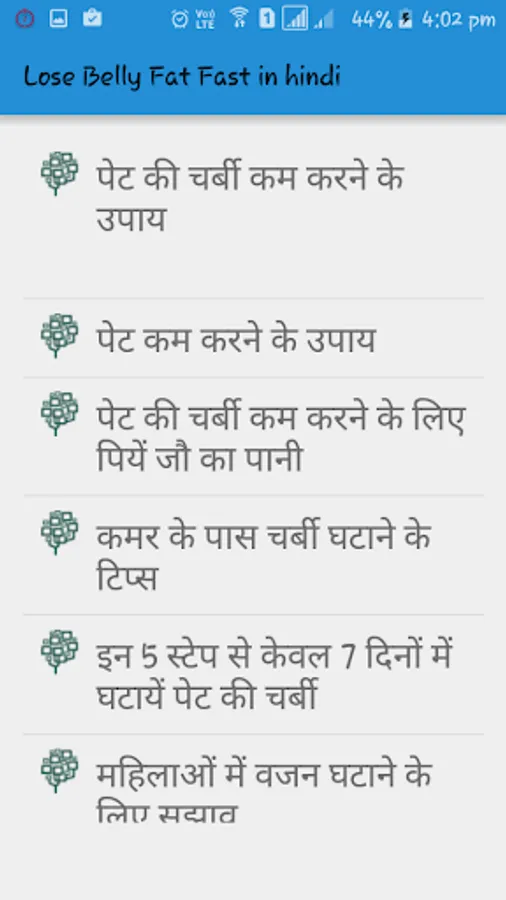 Vo)) LTE 1 44% 4:02 pm
Lose Belly Fat Fast in hindi
पेट की चर्बी कम करने के
उपाय
पेट कम करने के उपाय
पेट की चर्बी कम करने के लिए
पियें जौ का पानी
कमर के पास चर्बी घटाने के
टिप्स
इन 5 स्टेप से केवल 7 दिनों में
घटायें पेट की चर्बी
महिलाओं में वजन घटाने के
लिए सुझाव